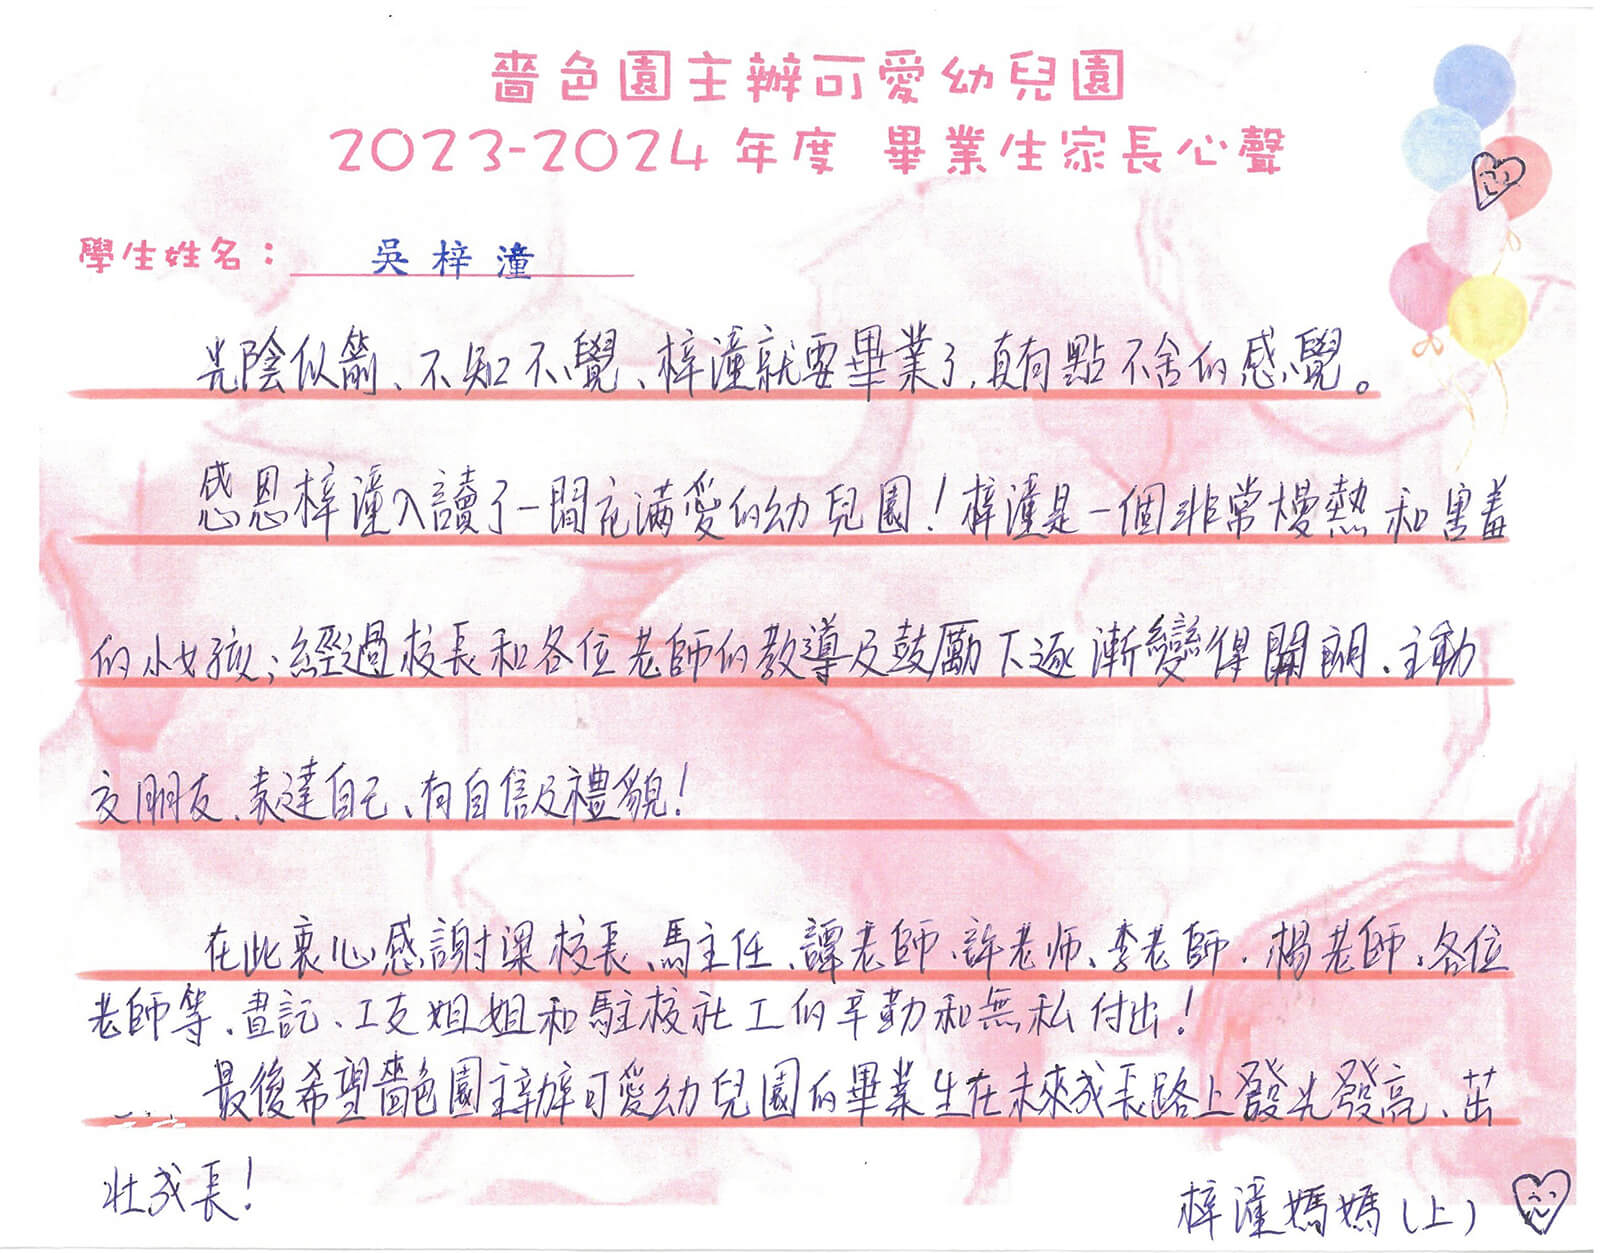 嗇色園主辦可愛幼兒園
2023-2024 年度 畢業生家長心聲
學生姓名： 吳梓潼
光陰似箭、不知不覺、梓潼就要畢業了，真有點不舍的感覺。
感恩梓潼入讀了一間充滿愛的幼兒園！梓潼是一個非常慢熱和害羞
的小女孩；經過校長和各位老師的教導及鼓勵下逐漸變得開朗、主動
交朋友、表達自己、有自信及禮貌！
在此衷心感謝梁校長、馬主任、譚老師、許老师、李老師、楊老師、各位
老師等、書記、工友姐姐和駐校社工的辛勤和無私付出！
最後希望嗇色園主辦可愛幼兒園的畢業生在未來成長路上發光發亮、茁
壯成長！
梓潼媽媽（上）